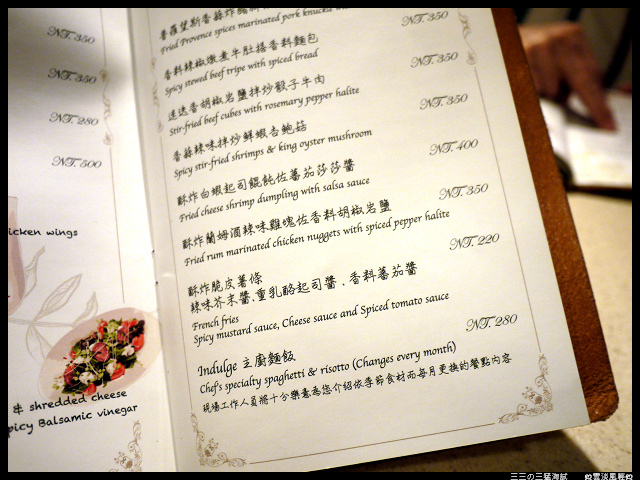 NT. 350
NT. 350
NT. 280
NT. 500
icken wings
& shredded cheese
picy Balsamic vinegar
Fried Provence spices marinated pork knuckle
NT. 350
香料辣椒燉煮牛肚搭香料麵包
Spicy stewed beef tripe with spiced bread
NT. 350
迷迭香胡椒岩鹽拌炒骰子牛肉
Stir-fried beef cubes with rosemary pepper halite
NT. 350
香蒜辣味拌炒鮮蝦杏鮑菇
Spicy stir-fried shrimps & king oyster mushroom
NT. 400
酥炸白蝦起司餛飩佐蕃茄莎莎醬
Fried cheese shrimp dumpling with salsa sauce
NT. 350
酥炸蘭姆酒辣味雞塊佐香料胡椒岩鹽
Fried rum marinated chicken nuggets with spiced pepper halite
NT. 220
酥炸脆皮薯條
辣味芥末醬,重乳酪起司醬,香料蕃茄醬
French fries
Spicy mustard sauce, Cheese sauce and Spiced tomato sauce
NT. 280
Indulge 主廚麵飯
Chef's specialty spaghetti & risotto (Changes every month)
現場工作人員將十分樂意為您介紹依季節食材而每月更換的餐點內容